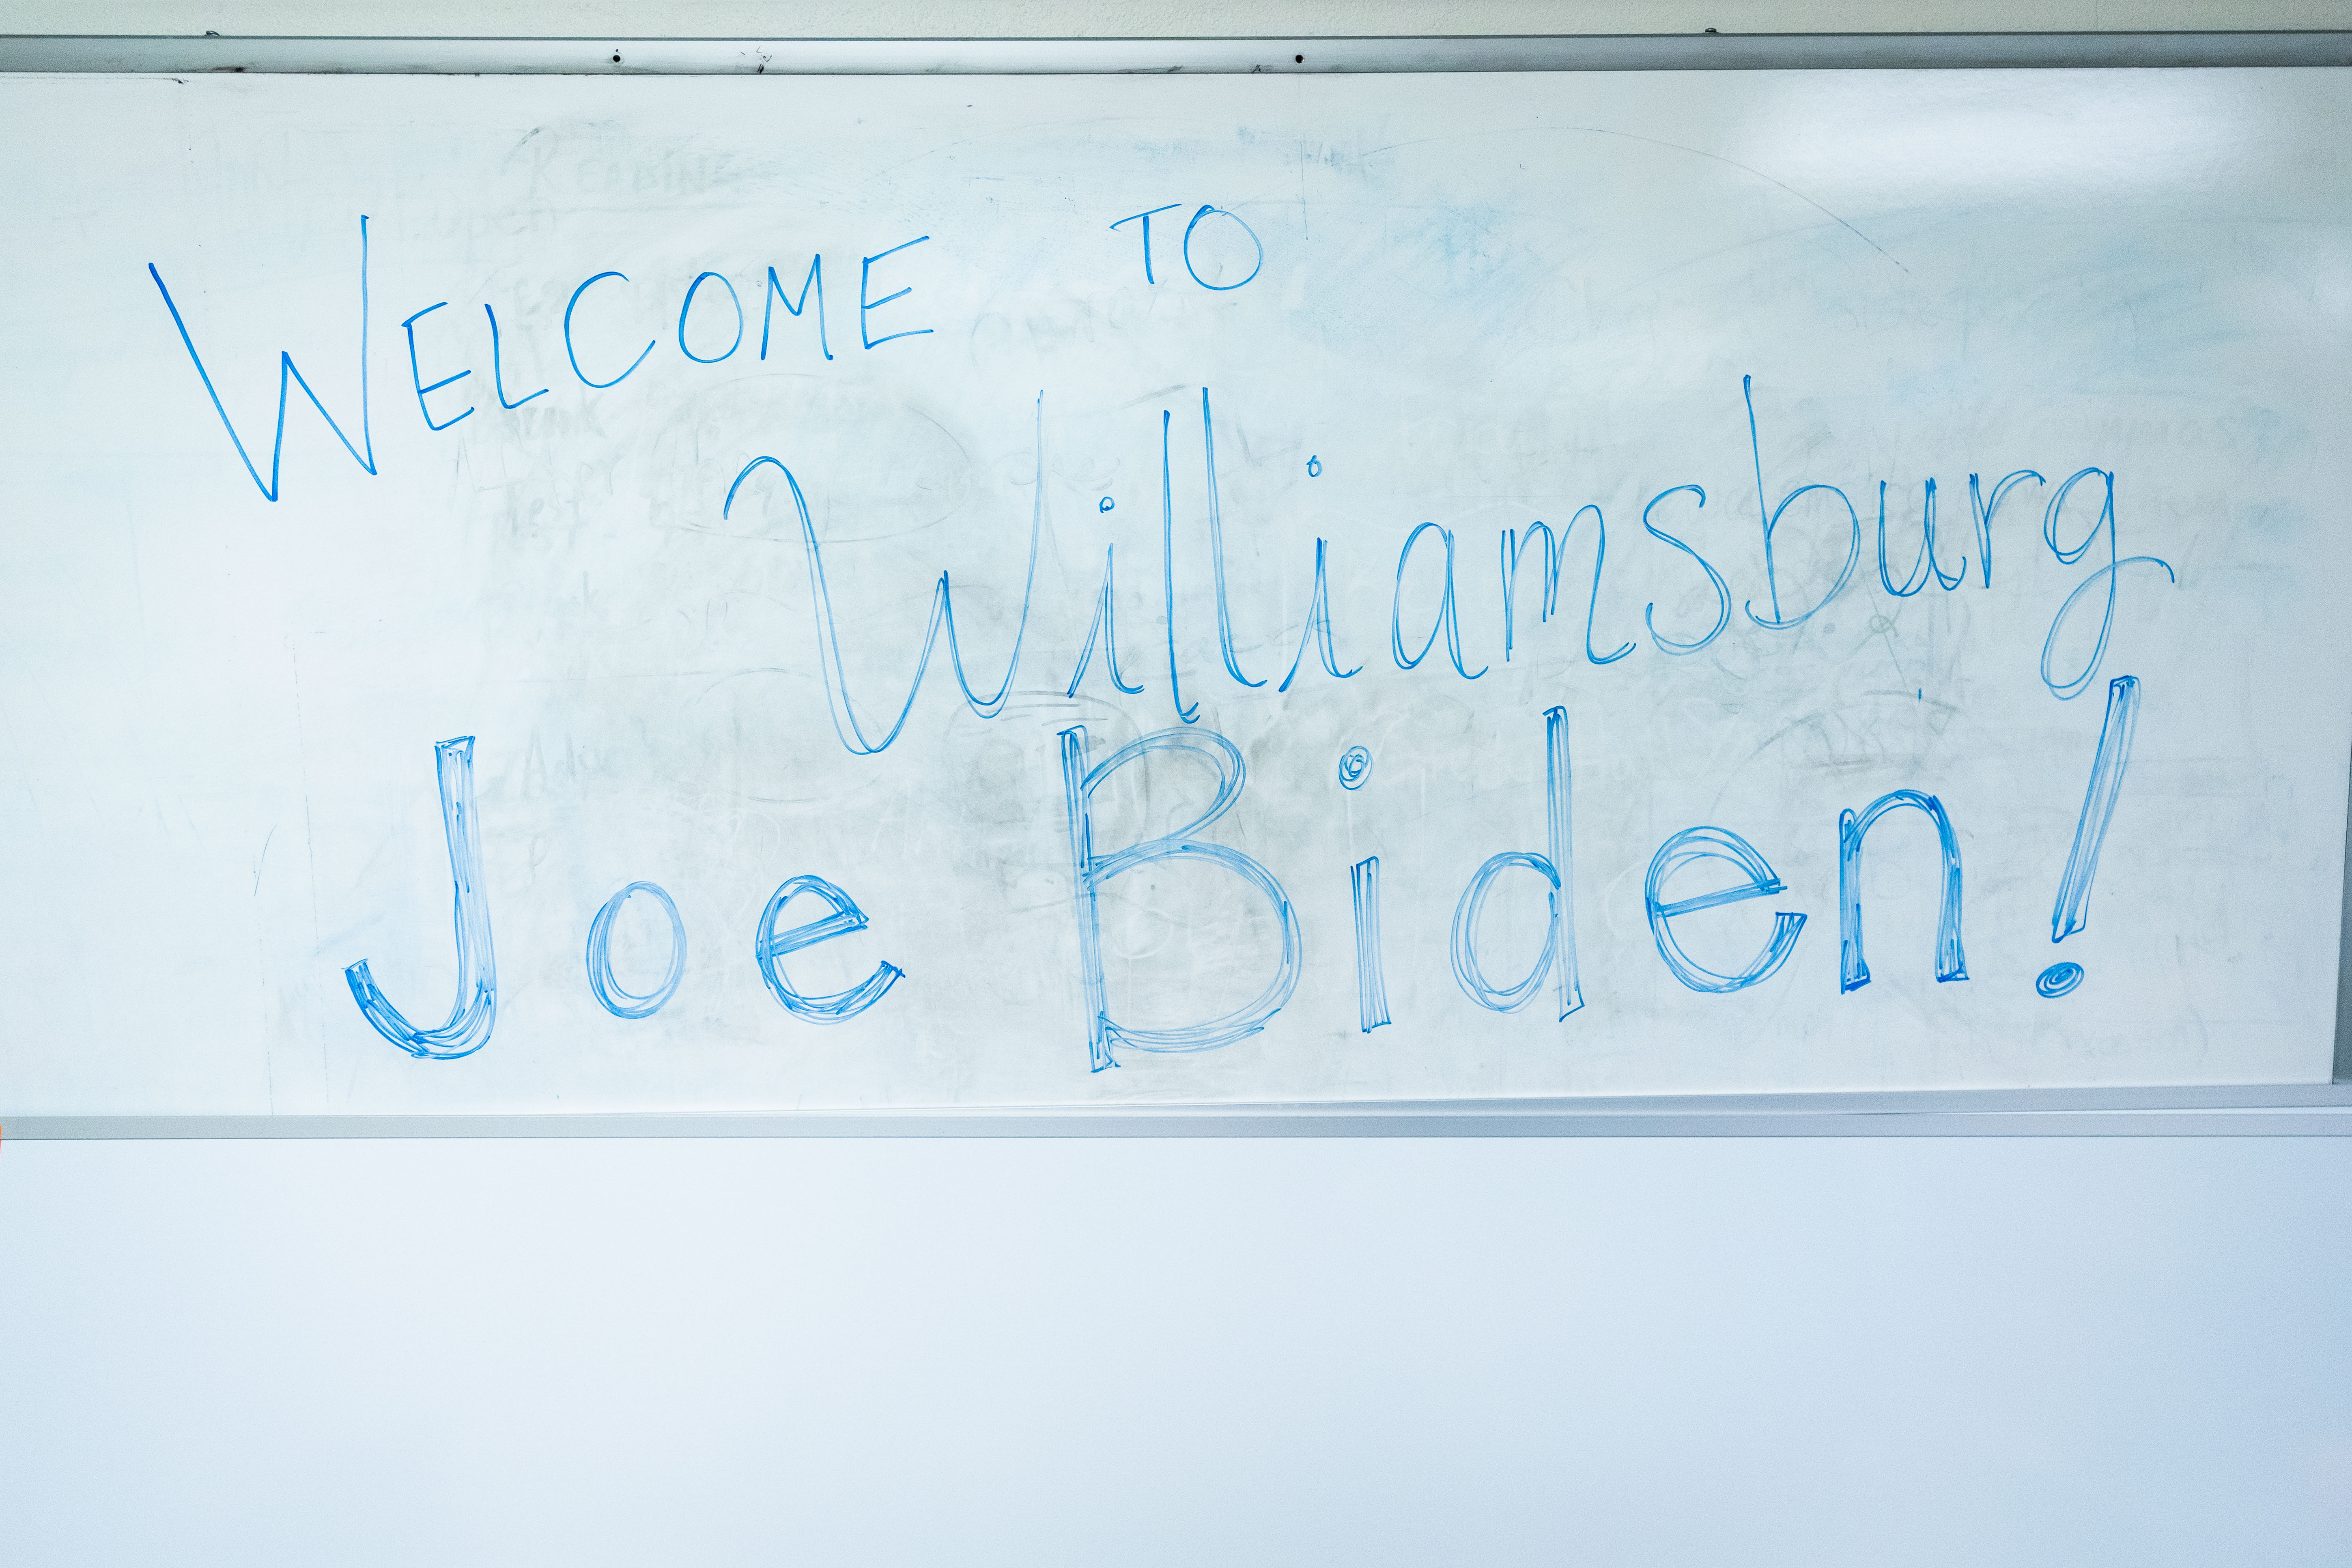 WELCOME TO
Williamsburg
Joe Biden!